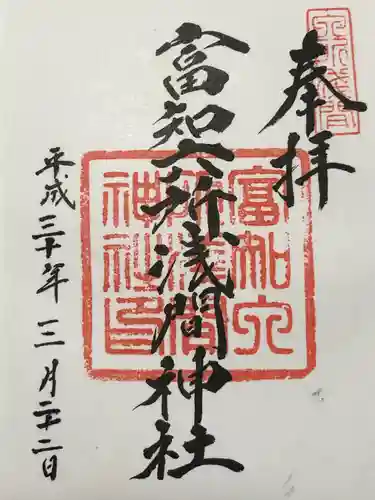 奉拝
富知六所浅間神社
平成三十年三月二十二日
富知六
所浅間
神社印
六所浅間